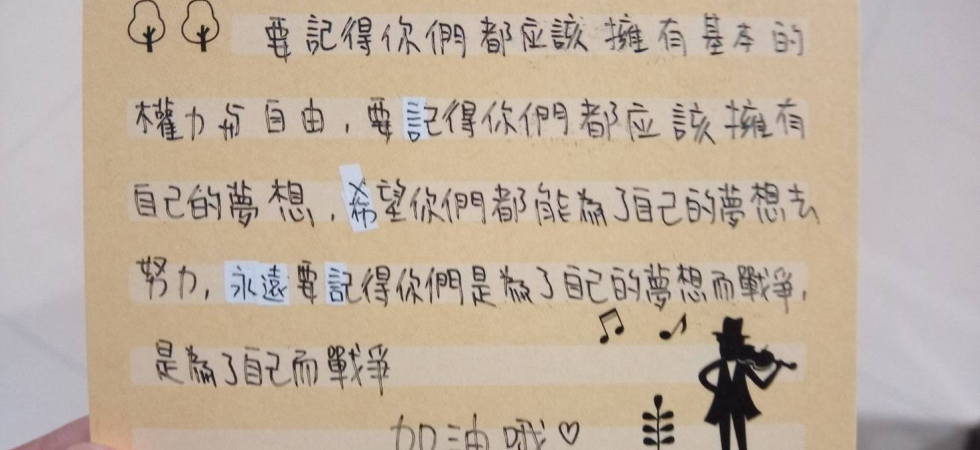 要記得你們都应該擁有基本的
權力与自由，要記得你們都应該擁有
自己的夢想，希望你們都能為了自己的夢想去
努力，永遠要記得你們是為了自己的夢想而戰爭，
是為了自己而戰爭
加油哦♡